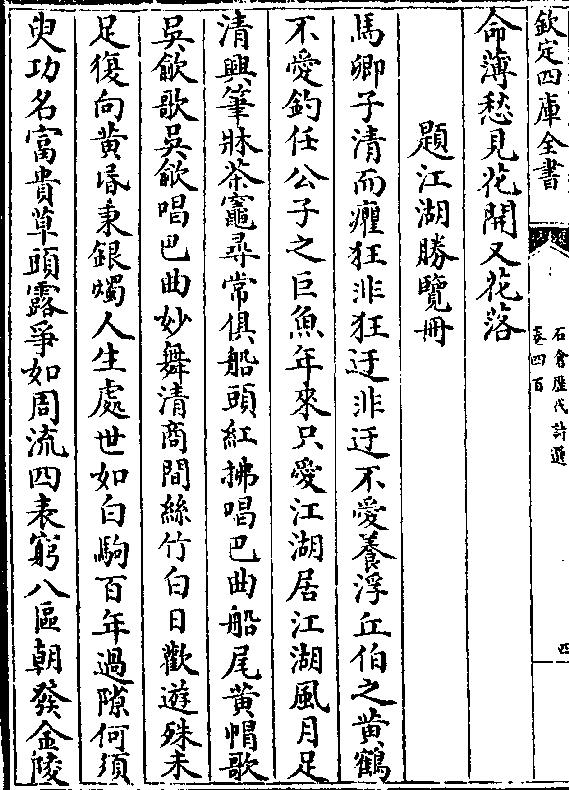 欽定四庫全書
石倉歷代詩選
卷四百
四
命薄愁見花開又花落
題江湖勝覽冊
馬卿子清而癯狂非狂迂非迂不愛養浮丘伯之黃鶴
不愛釣任公子之巨魚年來只愛江湖居江湖風月足
清興筆牀茶竈尋常俱船頭紅拂唱巴曲船尾黃帽歌
吳歈歌吳歈唱巴曲妙舞清商間絲竹白日歡遊殊未
足復向黃昏秉銀燭人生處世如白駒百年過隙何須
臾功名富貴草頭露爭如周流四表窮八區朝發金陵